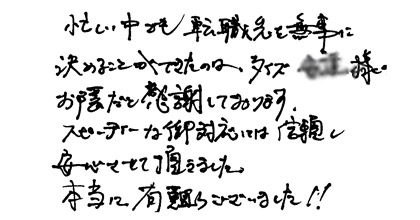 忙しい中でも転職先を無事に
決めることができたのは、タイズ 様の
お陰だと感謝しております。
スピーディーな御対応には信頼し
安心させて頂きました。
本当に有難うございました!!